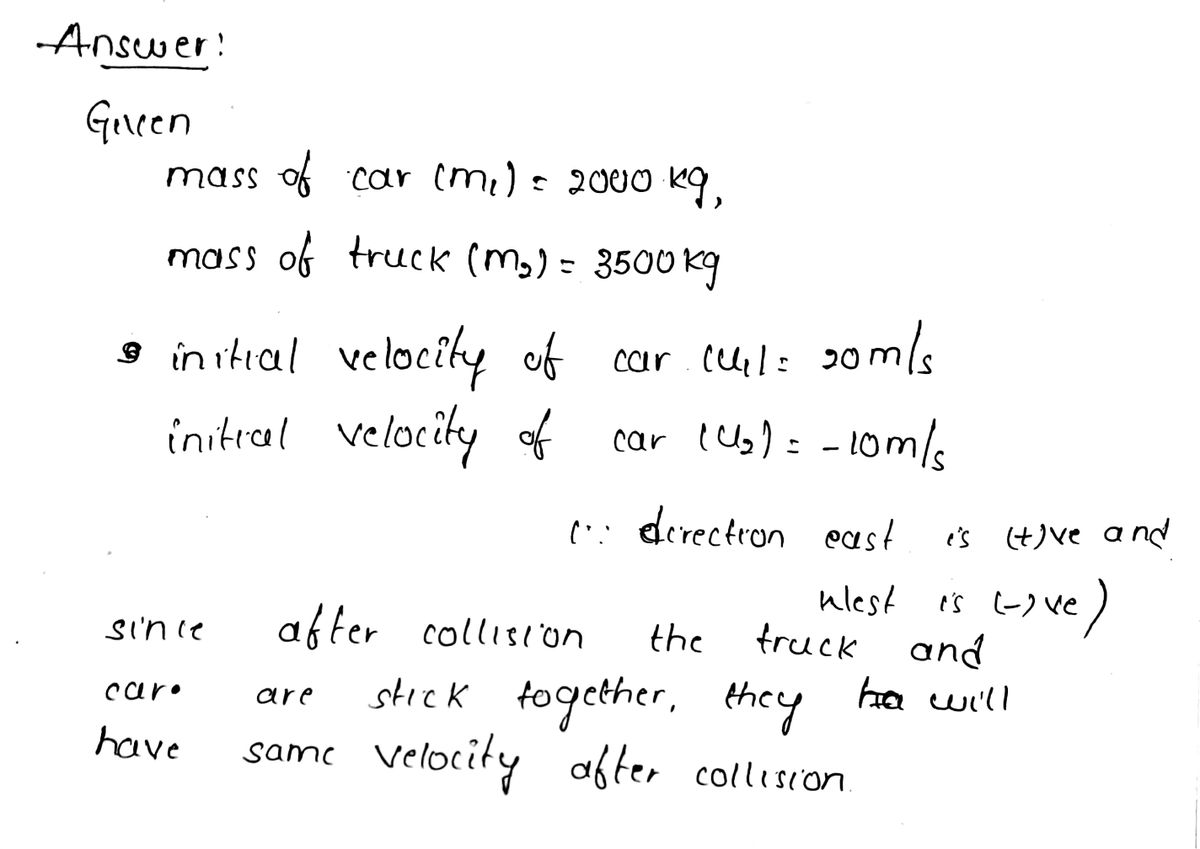 Answer:
Given
mass of car (m₁) = 2000 kg,
mass of truck (m₂) = 3500 kg
initial velocity of car (u₁) = 20 m/s
initial velocity of car (u₂) = -10 m/s
(∵ direction east is (+)ve and
west is (-)ve)
since after collision the truck and
car are stick together, they will
have same velocity after collision.